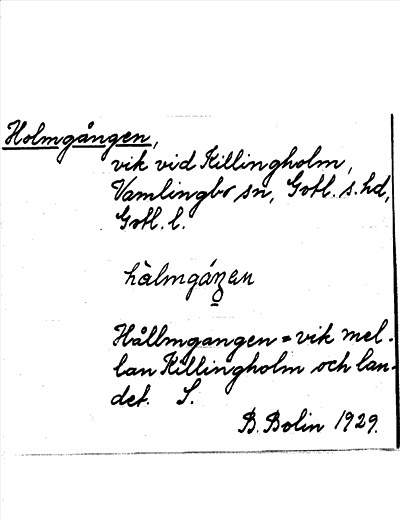 Holmgången,
vik vid Killingholm,
Vamlingbo sn, Gotl. s. hd,
Gotl. l.
Hållmgangen = vik mel-
lan Killingholm och lan-
det. S.
B. Bolin 1929.